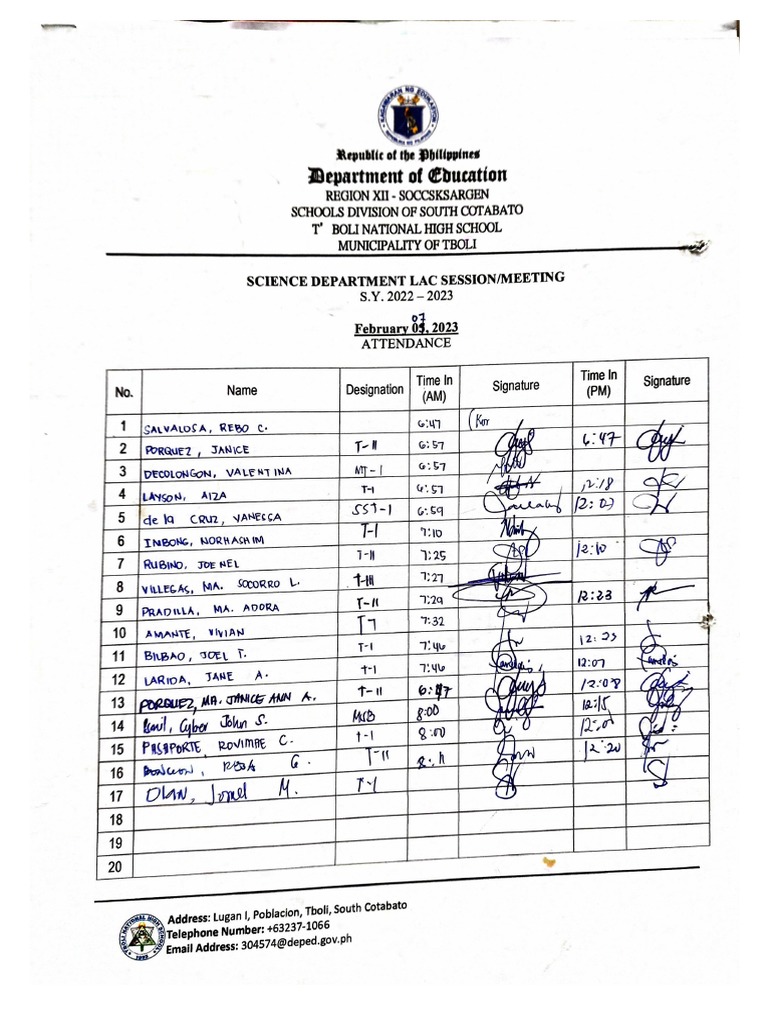 KAGAWARAN NG EDUKASYON
REPUBLIKA NG PILIPINAS
Republic of the Philippines
Department of Education
REGION XII - SOCCSKSARGEN
SCHOOLS DIVISION OF SOUTH COTABATO
T' BOLI NATIONAL HIGH SCHOOL
MUNICIPALITY OF TBOLI
SCIENCE DEPARTMENT LAC SESSION/MEETING
S.Y. 2022 – 2023
07
February 03, 2023
ATTENDANCE
No. Name Designation Time In (AM) Signature Time In (PM) Signature
1 SALVALOSA, REBO C. 6:47
2 PORQUEZ, JANICE T-II 6:57 6:47
3 DECOLONGON, VALENTINA MT-I 6:57
4 LAYSON, AIZA T-I 6:57 12:18
5 de la CRUZ, VANESSA SST-I 6:59 12:03
6 INBONG, NORHASHIM T-I 7:10
7 RUBINO, JOENEL T-II 7:25 12:10
8 VILLEGAS, MA. SOCORRO L. T-III 7:27
9 PRADILLA, MA. ADORA T-II 7:29 12:23
10 AMANTE, VIVIAN 7:32
11 BILBAO, JOEL T. T-I 7:46 12:23
12 LARIDA, JANE A. T-I 7:46 12:07
13 PORQUEZ, MA. JANICE ANN A. T-II 6:47 12:08
14 Cyber John S. 8:00 12:15
15 PASAPORTE, ROVIMAE C. T-I 8:00
16 G. T-II 8:11 12:20
17 Olan, Jomel M. T-I
18
19
20
TBOLI NATIONAL HIGH SCHOOL
Address: Lugan I, Poblacion, Tboli, South Cotabato
Telephone Number: +63237-1066
Email Address: 304574@deped.gov.ph